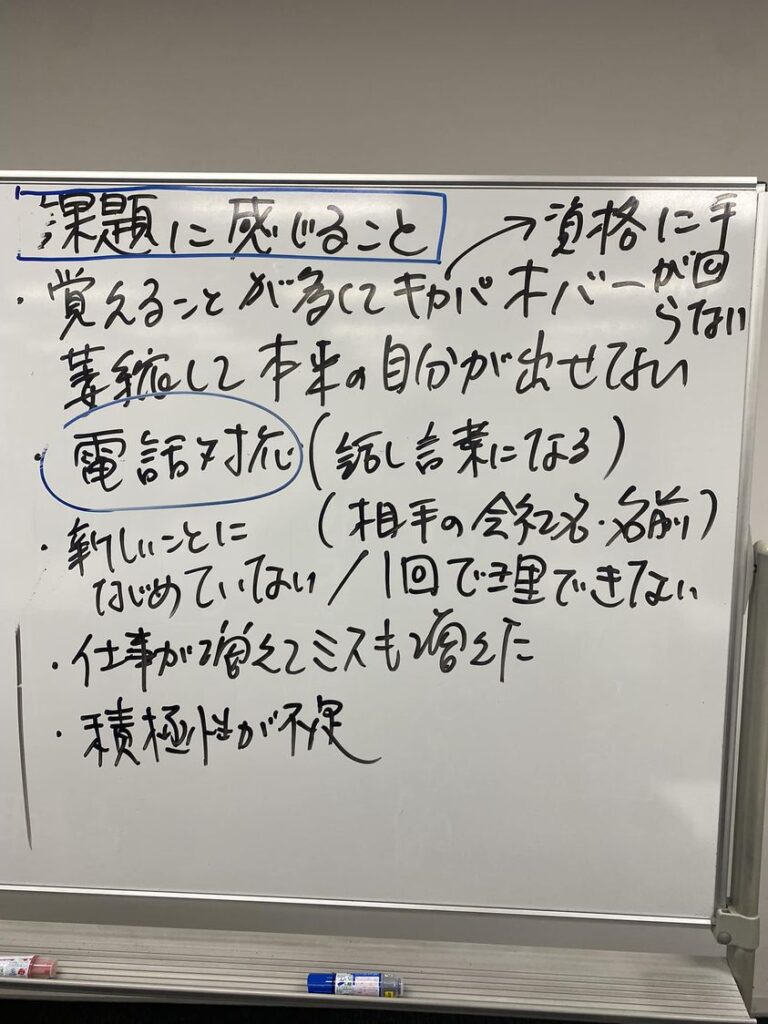 課題に感じること
→資格に手
が回
らない
・覚えることが多くてキャパオーバー
萎縮して本来の自分が出せない
・電話対応(話し言葉になる)
(相手の会社名・名前)
・新しいことに
なじめていない/1回で理できない
・仕事が増えてミスも増えた
・積極性が不足